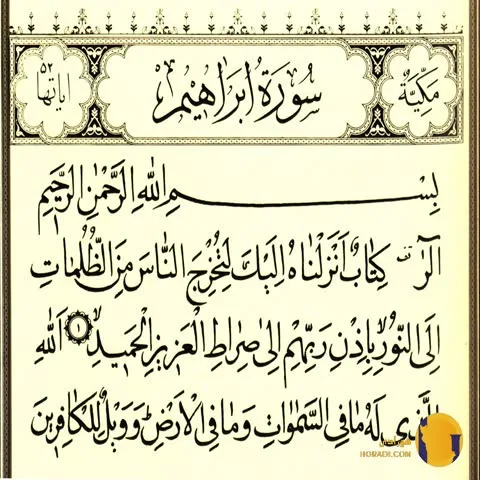 مَكِّيَّةٌ
سُورَةُ اِبْرَاهِيمَ
اياتها ٥٢
بِسْمِ اللّٰهِ الرَّحْمٰنِ الرَّحِيمِ
الٓرٰ كِتَابٌ اَنْزَلْنَاهُ اِلَيْكَ لِتُخْرِجَ النَّاسَ مِنَ الظُّلُمَاتِ
اِلَى النُّورِ بِاِذْنِ رَبِّهِمْ اِلٰى صِرَاطِ الْعَزِيزِ الْحَمِيدِ ١ اَللّٰهِ
الَّذِى لَهُ مَا فِى السَّمٰوَاتِ وَمَا فِى الْاَرْضِ وَوَيْلٌ لِلْكَافِرِينَ
HORADI.COM